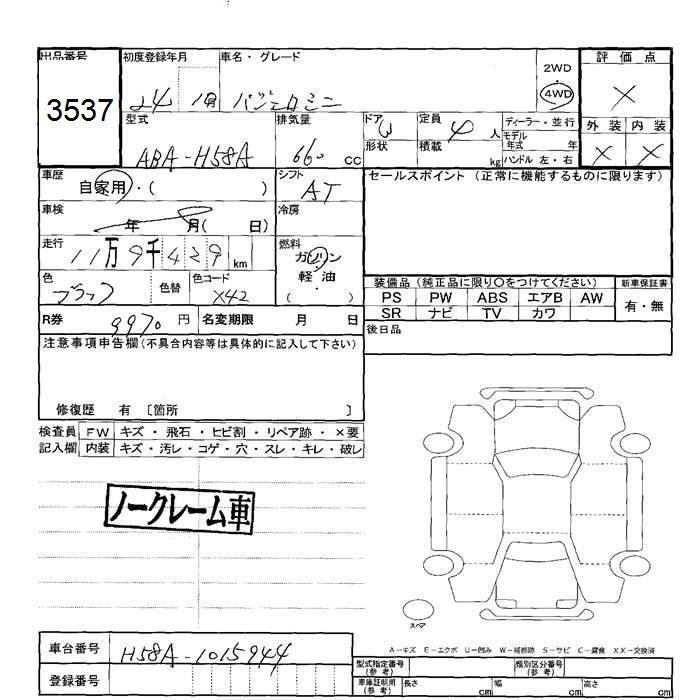 出品番号 初度登録年月 車名・グレード 評価点
3537 24 1月 パジェロミニ 2WD 4WD ×
型式 排気量 ドア 定員 ディーラー・並行 外装 内装
ABA-H58A 660 cc 3 4 人 モデル年式 年 × ×
形状 積載 kg ハンドル 左・右
車歴 自家用・( ) シフト AT セールスポイント (正常に機能するものに限ります)
車検 年 月( 日) 冷房
走行 11万9千429km 燃料 ガソリン
軽・油
( )
色 ブラック 色替 色コード X42
装備品 (純正品に限り○をつけてください) 新車保証書
PS PW ABS エアB AW 有・無
SR ナビ TV カワ
R券 9970 円 名変期限 月 日 後日品
注意事項申告欄(不具合内容等は具体的に記入して下さい)
修復歴 有 〔箇所 〕
検査員 FW キズ・飛石・ヒビ割・リペア跡・×要
記入欄 内装 キズ・汚レ・コゲ・穴・スレ・キレ・破レ
ノークレーム車
スペア
A-キズ E-エクボ U-凹み W-補修跡 S-サビ C-腐食 XX-交換済
車台番号 H58A-1015944 型式指定番号(参考) 類別区分番号(参考)
登録番号 車庫証明用(参考) 長さ cm 幅 cm 高さ cm